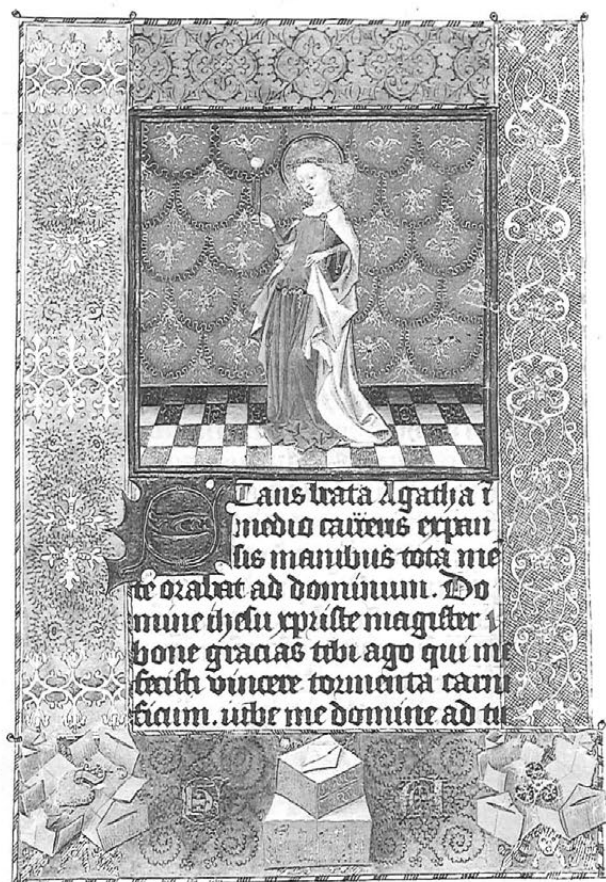 Stans beata Agatha ī
medio carceris expan
sis manibus tota me
te orabat ad dominum. Do
mine ihesu xpriste magister
bone gracias tibi ago qui me
fecisti vincere tormenta carni
ficum. iube me domine ad tu